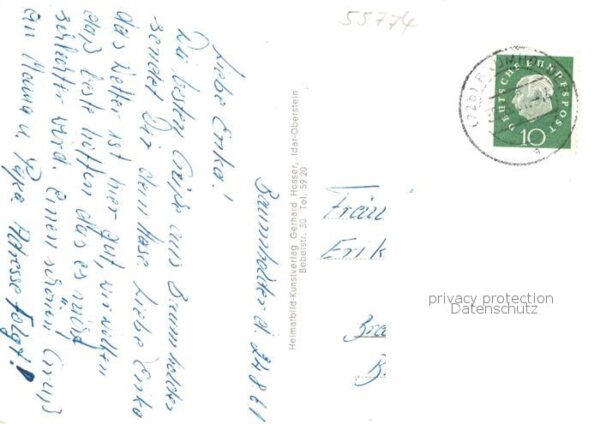 55774
Baumholder d. 24.8.61
Liebe Erika!
Die besten Grüße aus Baumholder
sendet Dir dein Hase. Liebe Erika
das Wetter ist hier gut, wir wollen
das beste hoffen das es nicht
schlechter wird. Einen schönen Gruß
an Mama u. Papa. Adresse folgt!
Heimatbild-Kunstverlag Gerhard Hosser, Idar-Oberstein
Bebelstr. 30 Tel. 59 20
DEUTSCHE BUNDESPOST
10
Fräu
Erik
privacy protection
Datenschutz